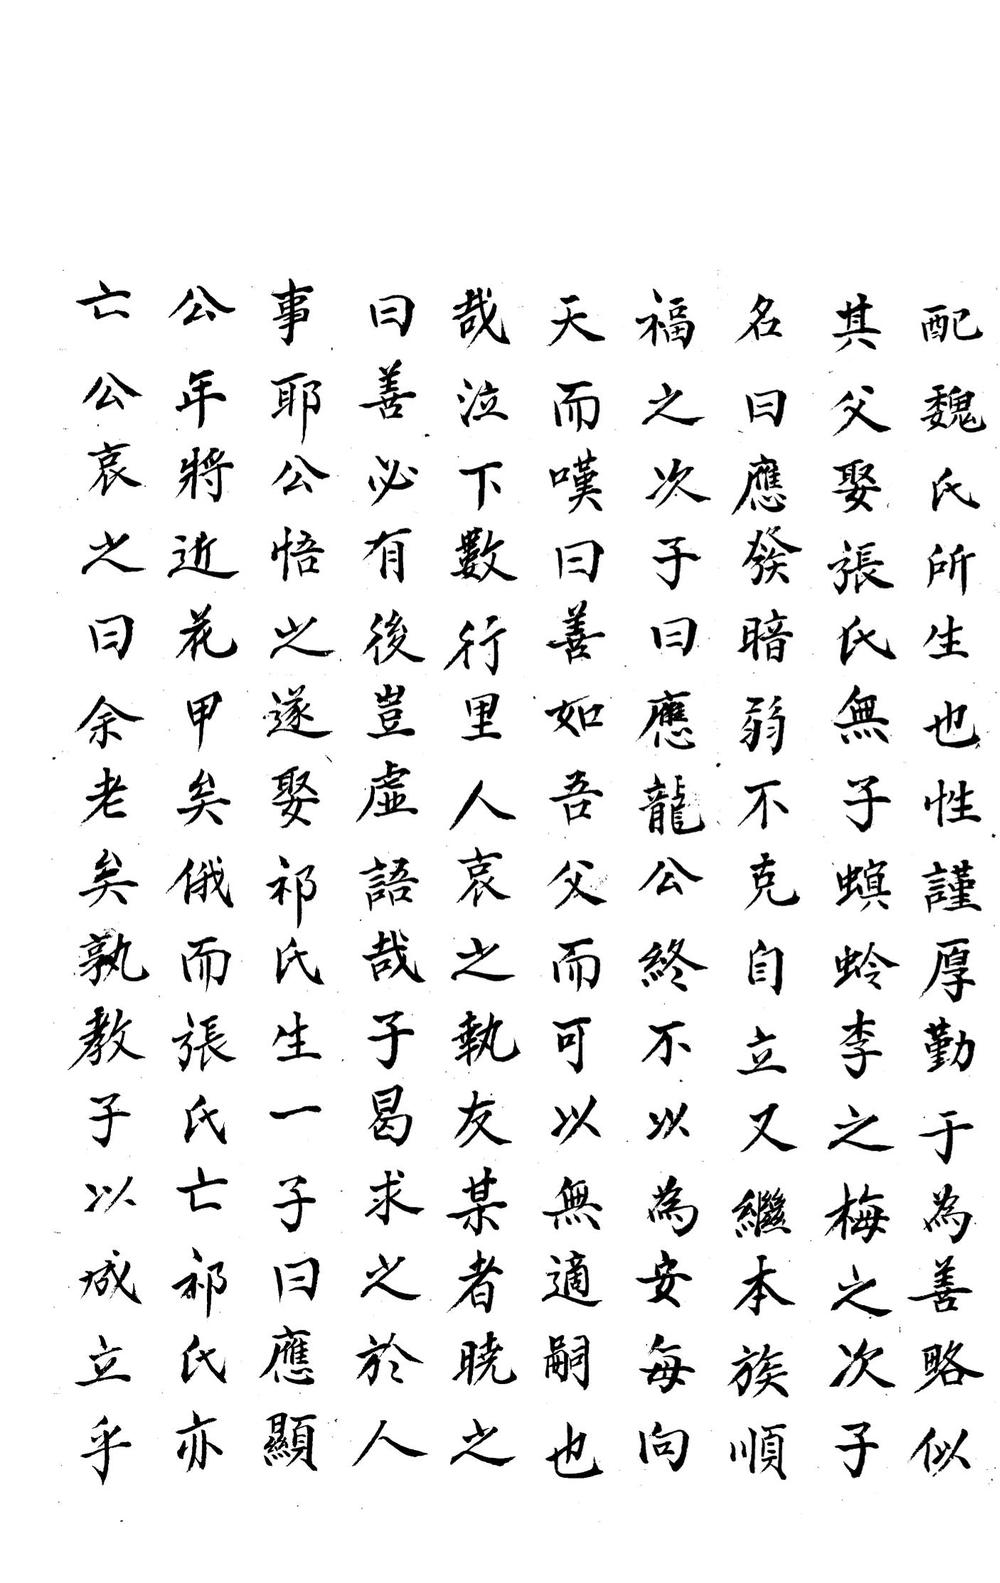 配魏氏所生也性謹厚勤于為善略似
其父娶張氏無子螟蛉李之梅之次子
名曰應發暗弱不克自立又繼本族順
福之次子曰應龍公終不以為安每向
天而嘆曰善如吾父而可以無適嗣也
哉泣下數行里人哀之執友某者曉之
曰善必有後豈虛語哉子曷求之於人
事耶公悟之遂娶祁氏生一子曰應顯
公年將近花甲矣俄而張氏亡祁氏亦
亡公哀之曰余老矣孰教子以成立乎